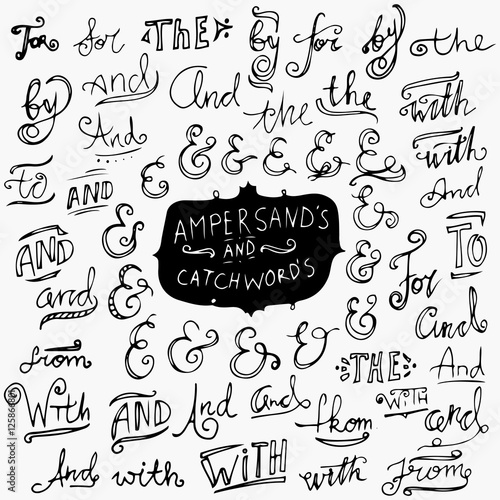 For for THE by for by the
by and And the the with
And with
to AND & & & & & & & And
& AMPERSAND'S & &
AND AND & TO
and & CATCHWORD'S & For
& & & & & & & and
from THE And
With AND And and from WITH and
And with WITH with From